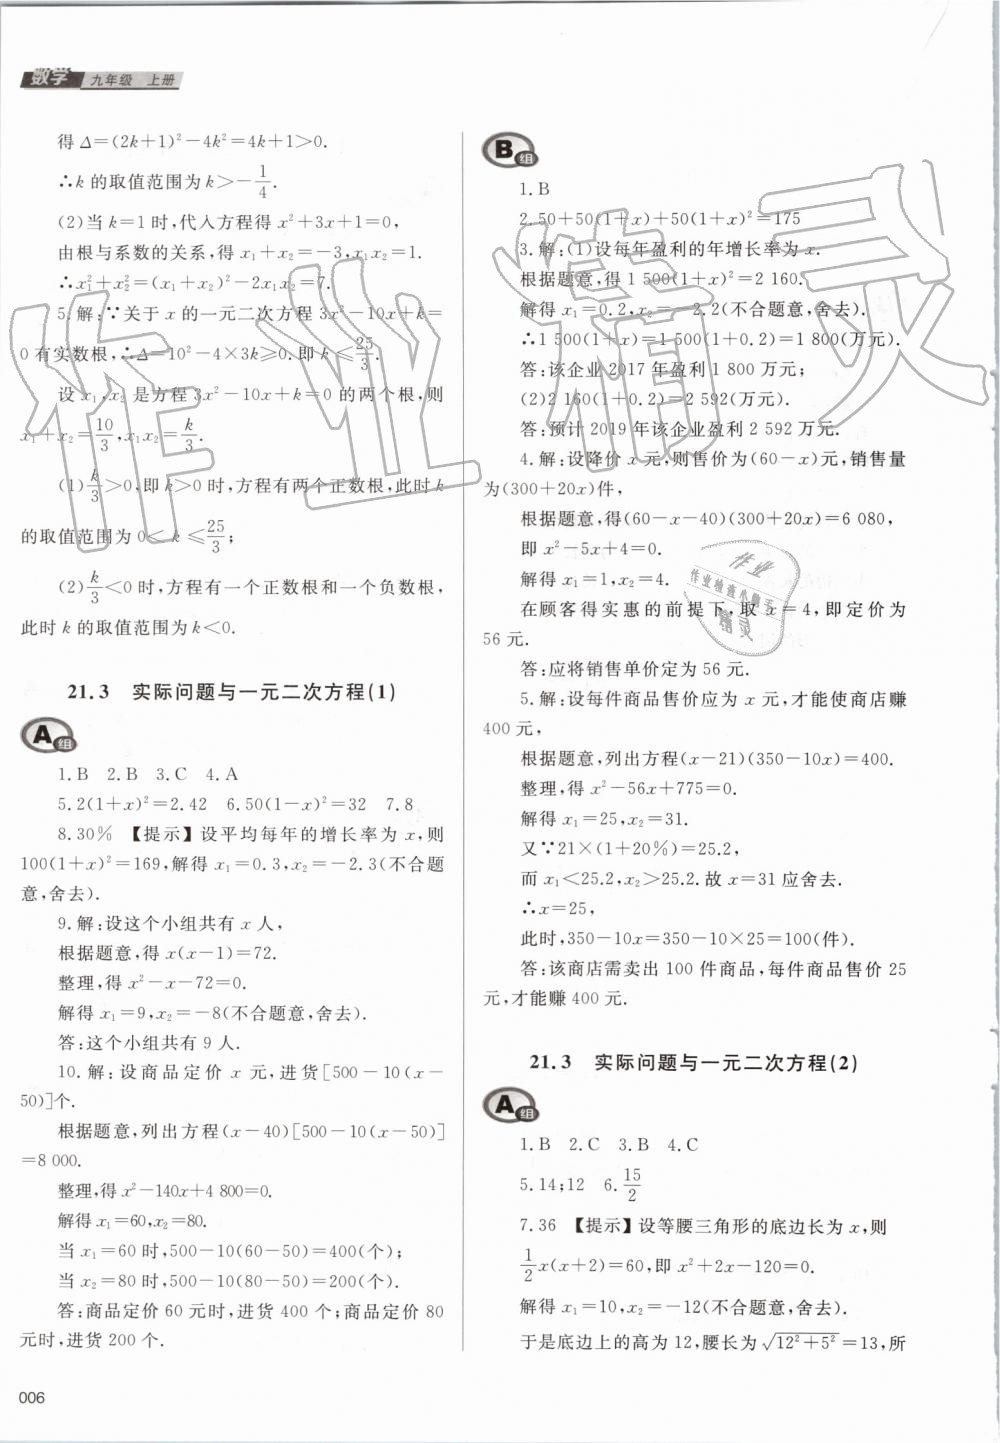 数学 九年级 上册
得 Δ=(2k+1)²-4k²=4k+1>0.
∴k 的取值范围为 k>-1/4.
(2)当 k=1 时,代入方程得 x²+3x+1=0,
由根与系数的关系,得 x₁+x₂=-3,x₁x₂=1.
∴x₁²+x₂²=(x₁+x₂)²-2x₁x₂=7.
5.解:∵关于 x 的一元二次方程 3x²-10x+k=
0 有实数根,∴Δ=10²-4×3k≥0.即 k≤25/3.
设 x₁,x₂ 是方程 3x²-10x+k=0 的两个根,则
x₁+x₂=10/3,x₁x₂=k/3.
(1)k/3>0,即 k>0 时,方程有两个正数根,此时 k
的取值范围为 0<k≤25/3;
(2)k/3<0 时,方程有一个正数根和一个负数根,
此时 k 的取值范围为 k<0.
21.3 实际问题与一元二次方程(1)
A组
1.B 2.B 3.C 4.A
5.2(1+x)²=2.42 6.50(1-x)²=32 7.8
8.30% 【提示】设平均每年的增长率为 x,则
100(1+x)²=169,解得 x₁=0.3,x₂=-2.3(不合题
意,舍去).
9.解:设这个小组共有 x 人,
根据题意,得 x(x-1)=72.
整理,得 x²-x-72=0.
解得 x₁=9,x₂=-8(不合题意,舍去).
答:这个小组共有 9 人.
10.解:设商品定价 x 元,进货[500-10(x-
50)]个.
根据题意,列出方程(x-40)[500-10(x-50)]
=8 000.
整理,得 x²-140x+4 800=0.
解得 x₁=60,x₂=80.
当 x₁=60 时,500-10(60-50)=400(个);
当 x₂=80 时,500-10(80-50)=200(个).
答:商品定价 60 元时,进货 400 个;商品定价 80
元时,进货 200 个.
006
B组
1.B
2.50+50(1+x)+50(1+x)²=175
3.解:(1)设每年盈利的年增长率为 x.
根据题意,得 1 500(1+x)²=2 160.
解得 x₁=0.2,x₂=-2.2(不合题意,舍去).
∴1 500(1+x)=1 500(1+0.2)=1 800(万元).
答:该企业 2017 年盈利 1 800 万元;
(2)2 160(1+0.2)=2 592(万元).
答:预计 2019 年该企业盈利 2 592 万元.
4.解:设降价 x 元,则售价为(60-x)元,销售量
为(300+20x)件,
根据题意,得(60-x-40)(300+20x)=6 080,
即 x²-5x+4=0.
解得 x₁=1,x₂=4.
在顾客得实惠的前提下,取 x=4,即定价为
56 元.
答:应将销售单价定为 56 元.
5.解:设每件商品售价应为 x 元,才能使商店赚
400 元,
根据题意,列出方程(x-21)(350-10x)=400.
整理,得 x²-56x+775=0.
解得 x₁=25,x₂=31.
又∵21×(1+20%)=25.2,
而 x₁<25.2,x₂>25.2.故 x=31 应舍去.
∴x=25,
此时,350-10x=350-10×25=100(件).
答:该商店需卖出 100 件商品,每件商品售价 25
元,才能赚 400 元.
21.3 实际问题与一元二次方程(2)
A组
1.B 2.C 3.B 4.C
5.14;12 6.15/2
7.36 【提示】设等腰三角形的底边长为 x,则
1/2x(x+2)=60,即 x²+2x-120=0.
解得 x₁=10,x₂=-12(不合题意,舍去).
于是底边上的高为 12,腰长为√(12²+5²)=13,所
作业精灵
作业
作业检查小帮手
精灵